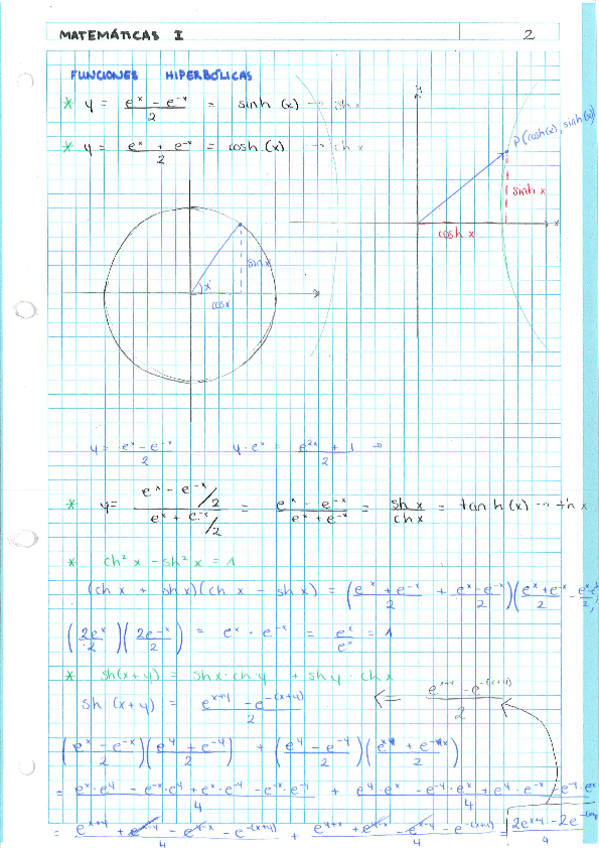 MATEMÁTICAS I 2
FUNCIONES HIPERBÓLICAS
* y = (e^x - e^-x)/2 = sinh (x) → sh x
* y = (e^x + e^-x)/2 = cosh (x) → ch x
y
P(cosh(x), sinh(x))
sinh x
cosh x
x
sin x
x
cos x
y = (e^x - e^-x)/2 y·e^x = (e^2x + 1)/2 ⇒
* y = ((e^x - e^-x)/2)/((e^x + e^-x)/2) = (e^x - e^-x)/(e^x + e^-x) = sh x/ch x = tanh(x) → th x
* ch² x - sh² x = 1
(ch x + sh x)(ch x - sh x) = ((e^x + e^-x)/2 + (e^x - e^-x)/2)((e^x + e^-x)/2 -
(2e^x/2)(2e^-x/2) = e^x · e^-x = e^x/e^x = 1
* sh(x+y) = sh x · ch y + sh y · ch x
sh (x+y) = (e^(x+y) - e^-(x+y))/2 <= (e^(x+y) - e^-(x+y))/2
((e^x - e^-x)/2)((e^y + e^-y)/2) + ((e^y - e^-y)/2)((e^x + e^-x)/2)
= (e^x·e^y - e^-x·e^y + e^x·e^-y - e^-x·e^-y)/4 + (e^y·e^x - e^-y·e^x + e^y·e^-x - e^-y·
= (e^(x+y) + e^(x-y) - e^(y-x) - e^-(x+y))/4 + (e^(y+x) + e^(y-x) - e^(x-y) - e^-(x+y))/4 =